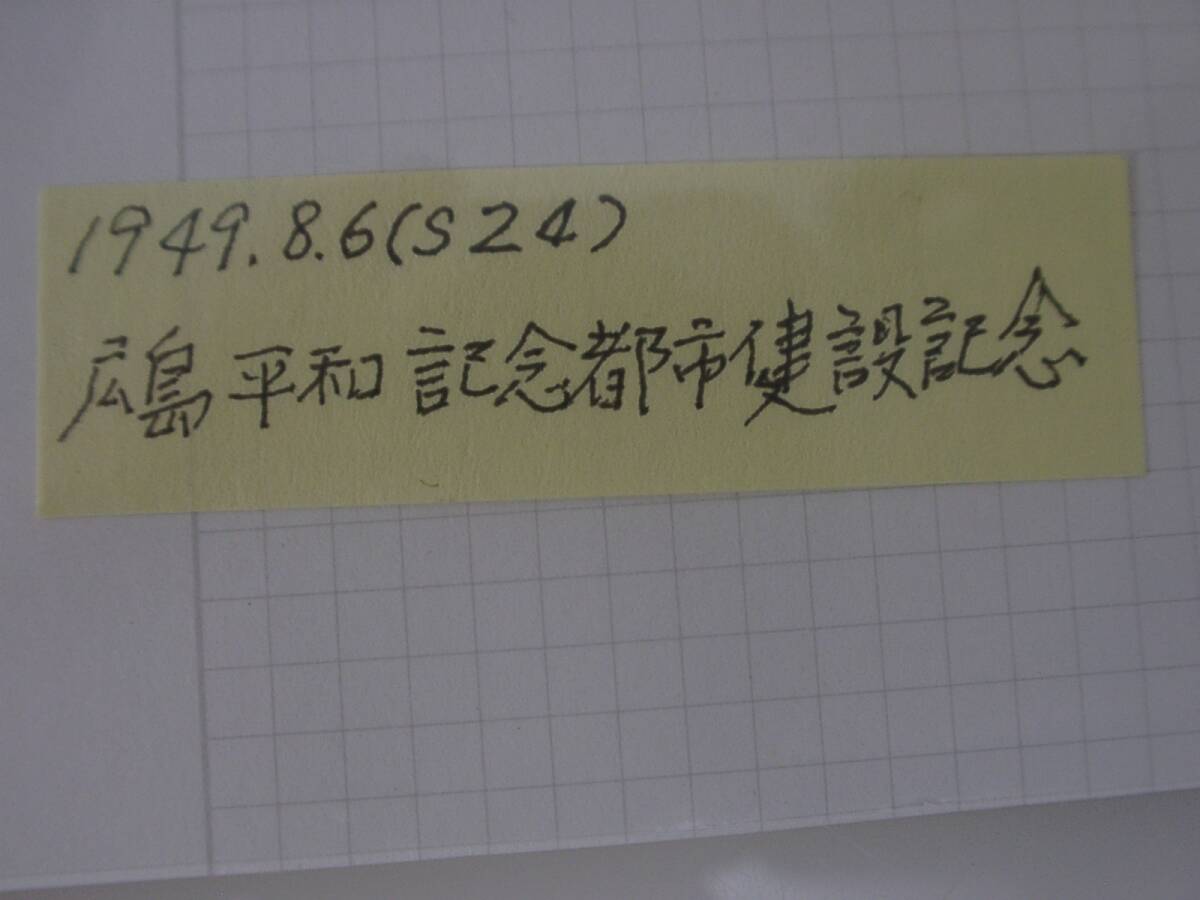 1949.8.6(S24)
広島平和記念都市建設記念